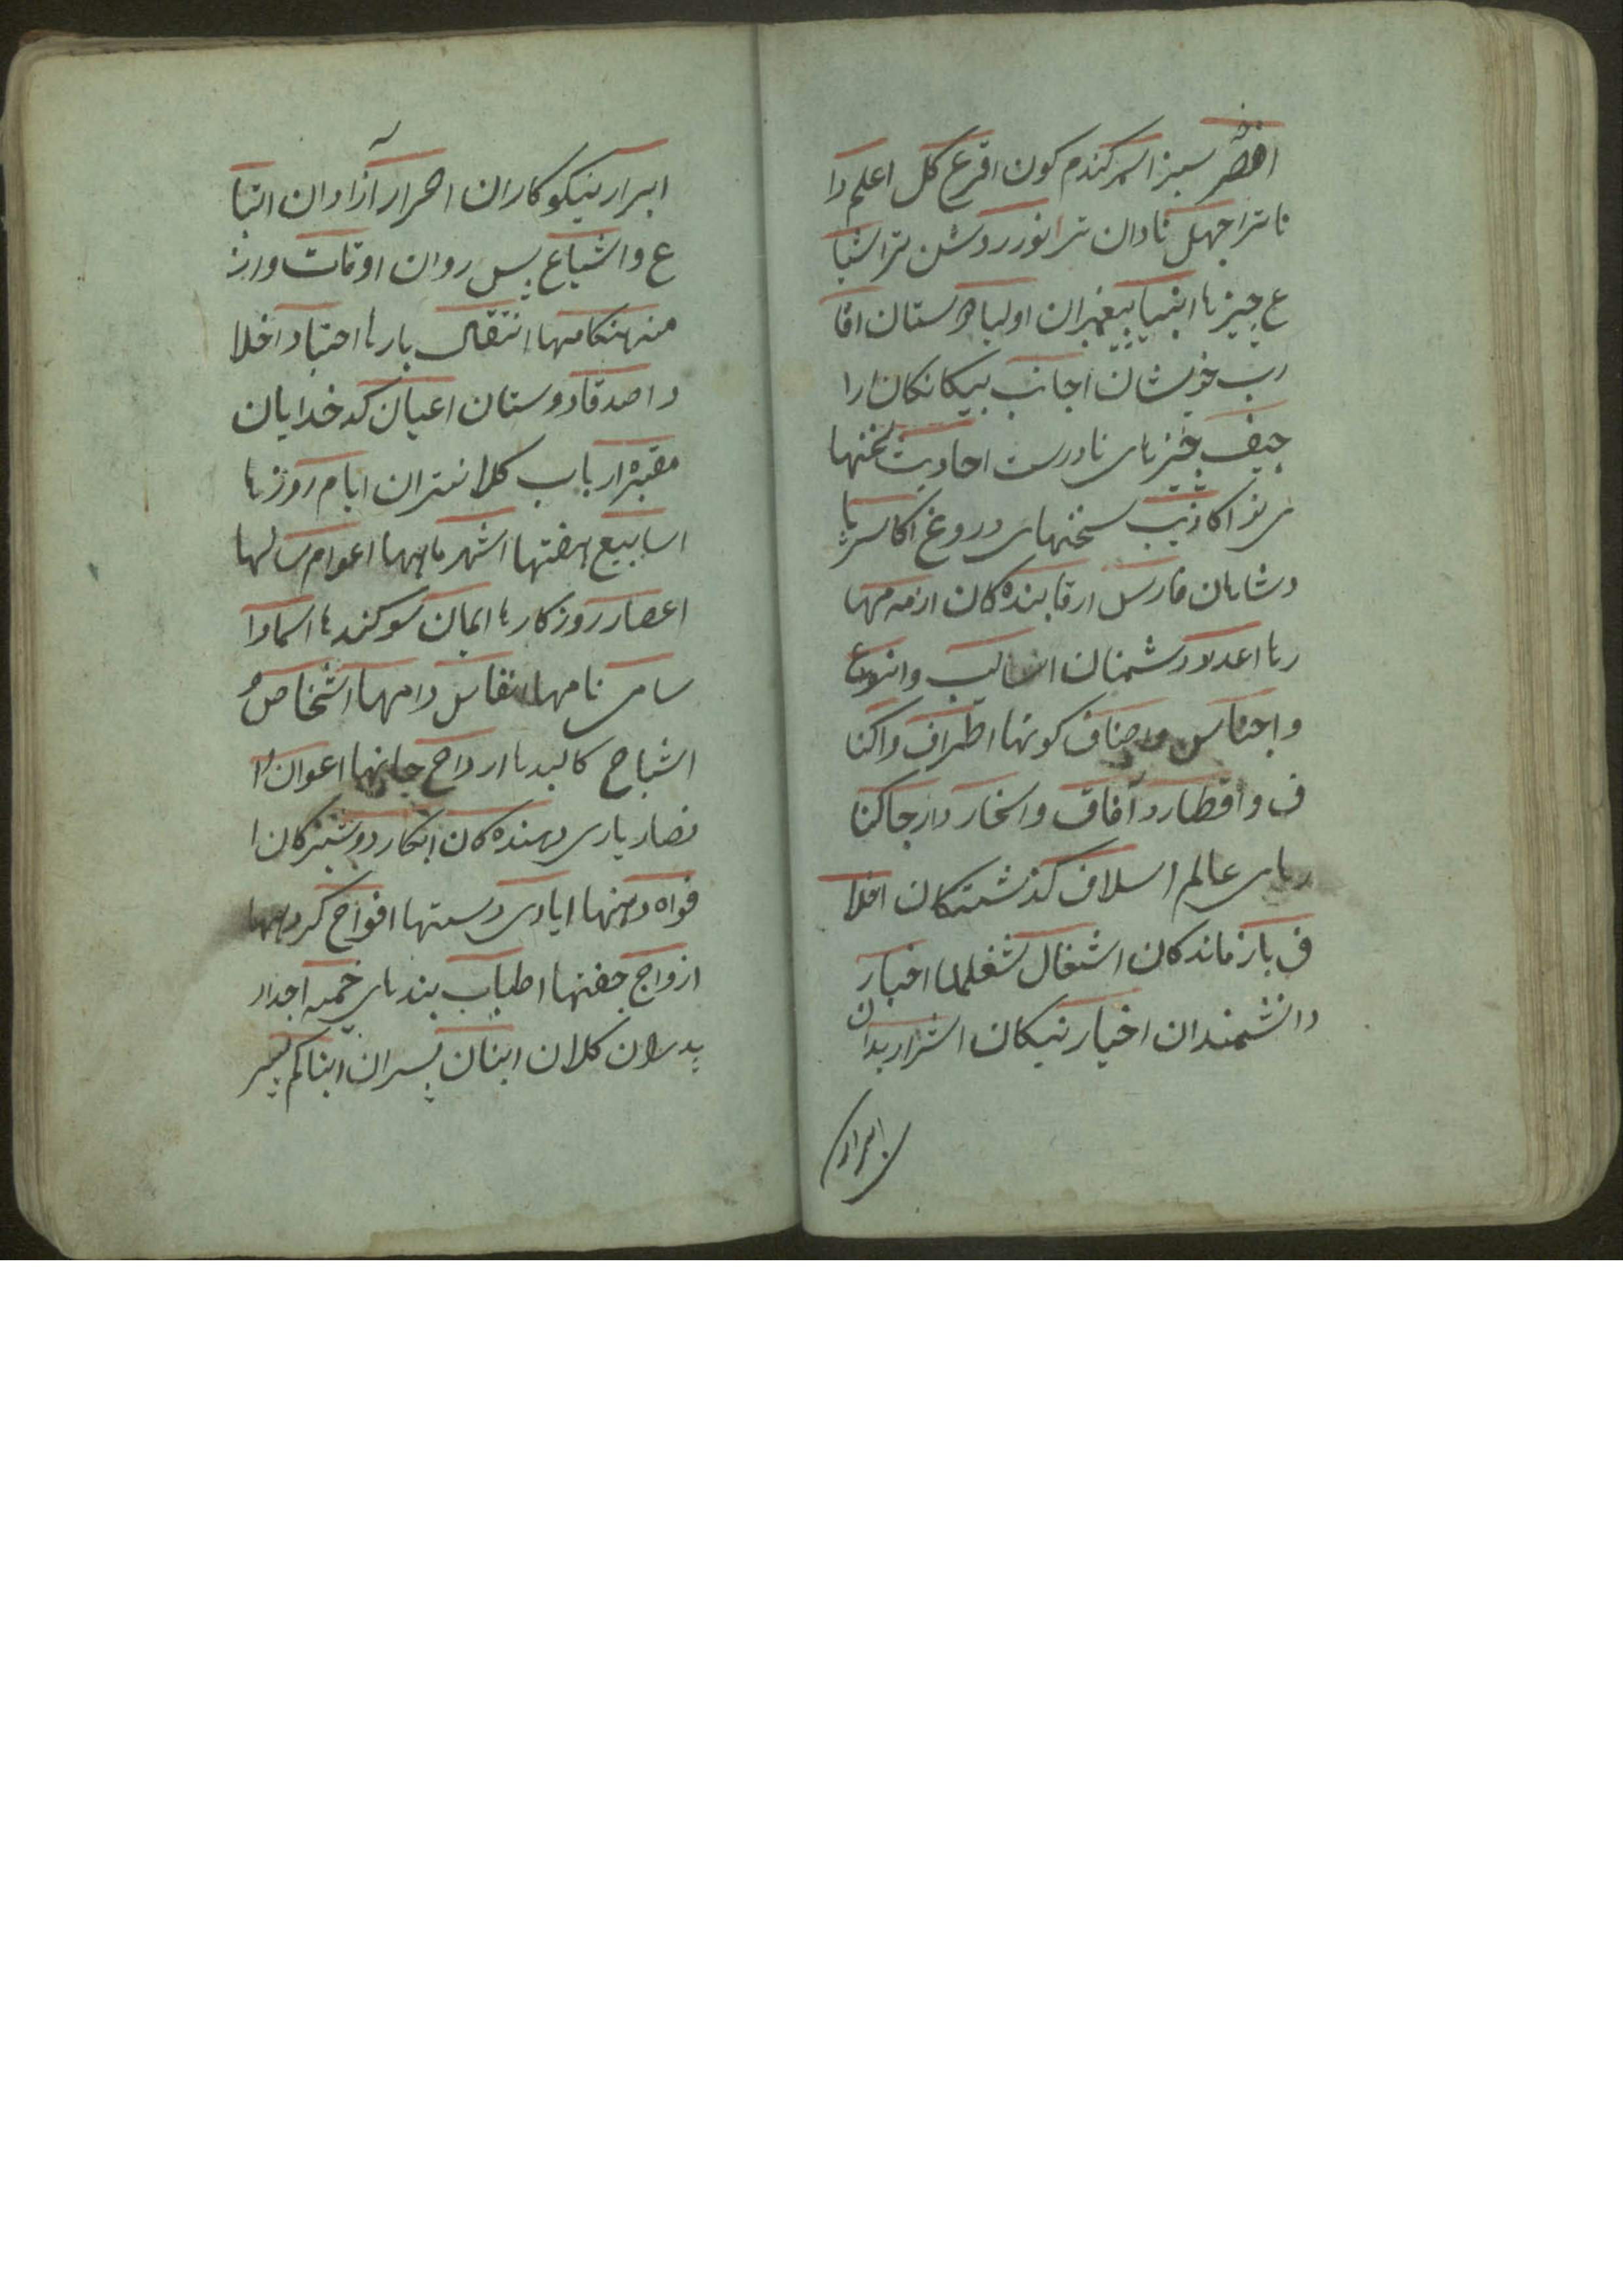 اخضر سبز اسمر کندم کون اقرع کل اعلم دا
ناتر اجهل نادان تر انور روشن تر اشیا
ع چیزها انبیا پیغمبران اولیا دوستان اقا
رب خویشان اجانب بیکانکان ارا
جیف چیزهای نادرست احادیث سخنها
ی نو اکاذیب سخنهای دروغ اکاسر با
دشاهان فارس ارقا بنده کان ازمه مهار
رها اعدا دشمنان اسالیب وانواع
واجناس واصناف کونها اطراف واکنا
ف واقطار وآفاق وانحار وارجا کنا
رهای عالم اسلاف کذشتکان اخلا
ف باز ماندکان اشتغال شغلها احبار
دانشمندان اخیار نیکان اشرار بدان
ابرار
ابرار نیکو کاران احرار آزادان اتبا
ع واشیاع پس روان اوقات واز
منه هنکامها اثقال بارها احبا واخلا
واصدقا دوستان اعیان کد خدایان
مقبره ارباب کلانتران ایام روزها
اسابیع هفتها اشهر ماهها اعوام سالها
اعصار روزکارها ایمان سوکندها اسما وا
سامی نامها انفاس دامها اشخاص و
اشباح کالبدها ارواح جانها اعوان وا
نصار یاری دهنده کان ابکار دوشیزکان ا
فواه دهنها ایادی دستها افواج کروهها
ازواج جفتها اطناب بندهای خیمه اجداد
پدران کلان ابنان پسران ابناکم پسر